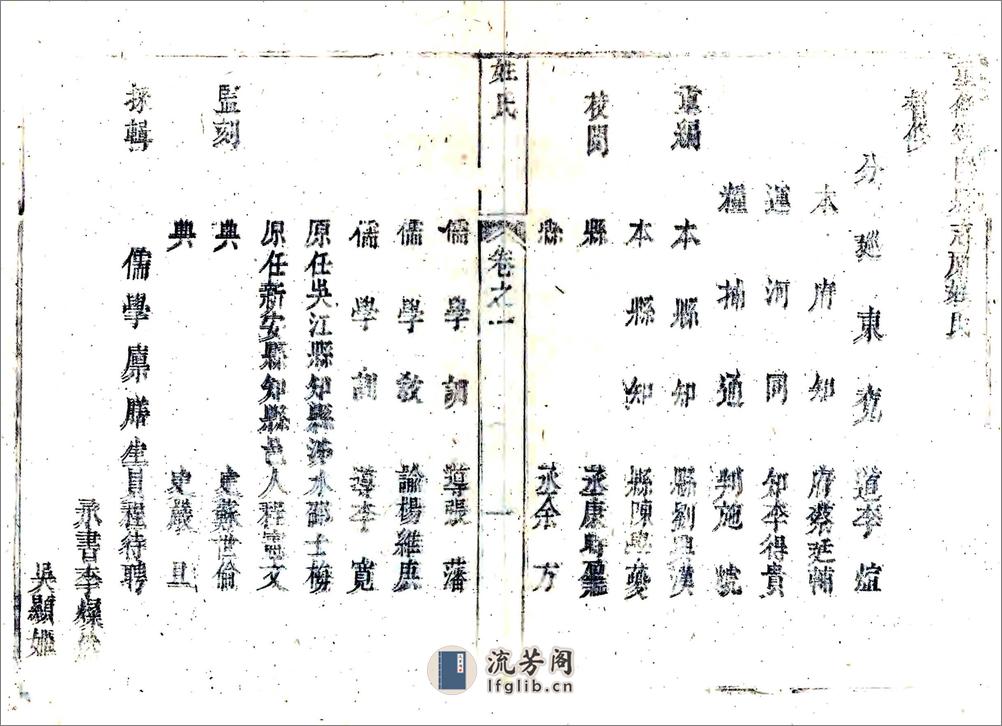 志原姓氏
督修
分廵東兗道李煊
本府知府蔡廷輔
運河同知李得貴
糧捕通判施
重編
本縣知縣劉興漢
本縣知縣陳興
校閱
縣丞康
縣丞余方
姓氏
卷之一
一
儒學訓導張藩
儒學教諭楊維
儒學訓導李寬
原任吳江縣知縣涉水邵士梅
原任新安縣知縣邑人程憲文
監刻
典史蘇世倫
典史嚴旦
採輯
儒學廪膳生員程待聘
承書李燦
吳顯
流芳阁
lfglib.cn